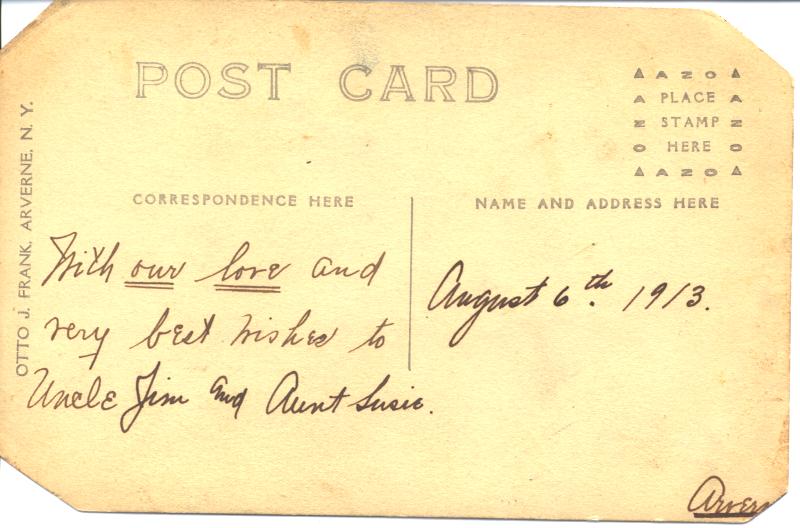 POST CARD
▲ A Z O ▲
A PLACE A
Z STAMP Z
O HERE O
▲ A Z O ▲
OTTO J. FRANK, ARVERNE, N. Y.
CORRESPONDENCE HERE
NAME AND ADDRESS HERE
With our love and
very best wishes to
Uncle Jim and Aunt Susie.
August 6th. 1913.
Arvern